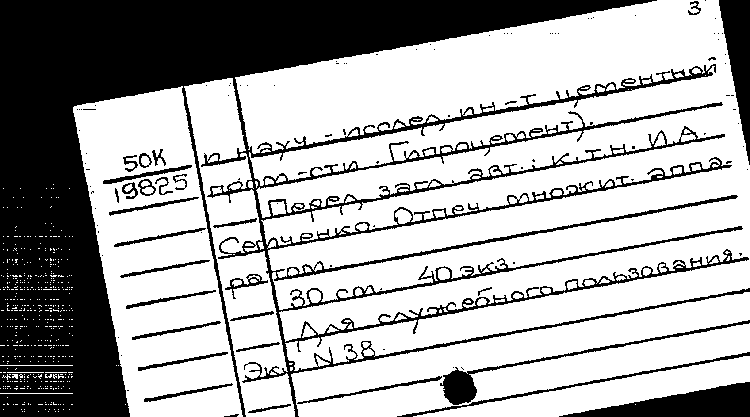 3
50К
19825
и науч.-исслед. ин-т цементной
пром-сти. Гипроцемент).
Перед загл. авт.: к.т.н. И.А.
Сенченко. Отпеч. множит. аппа-
ратом.
30 см. 40 экз.
Для служебного пользования.
Экз. N 38.